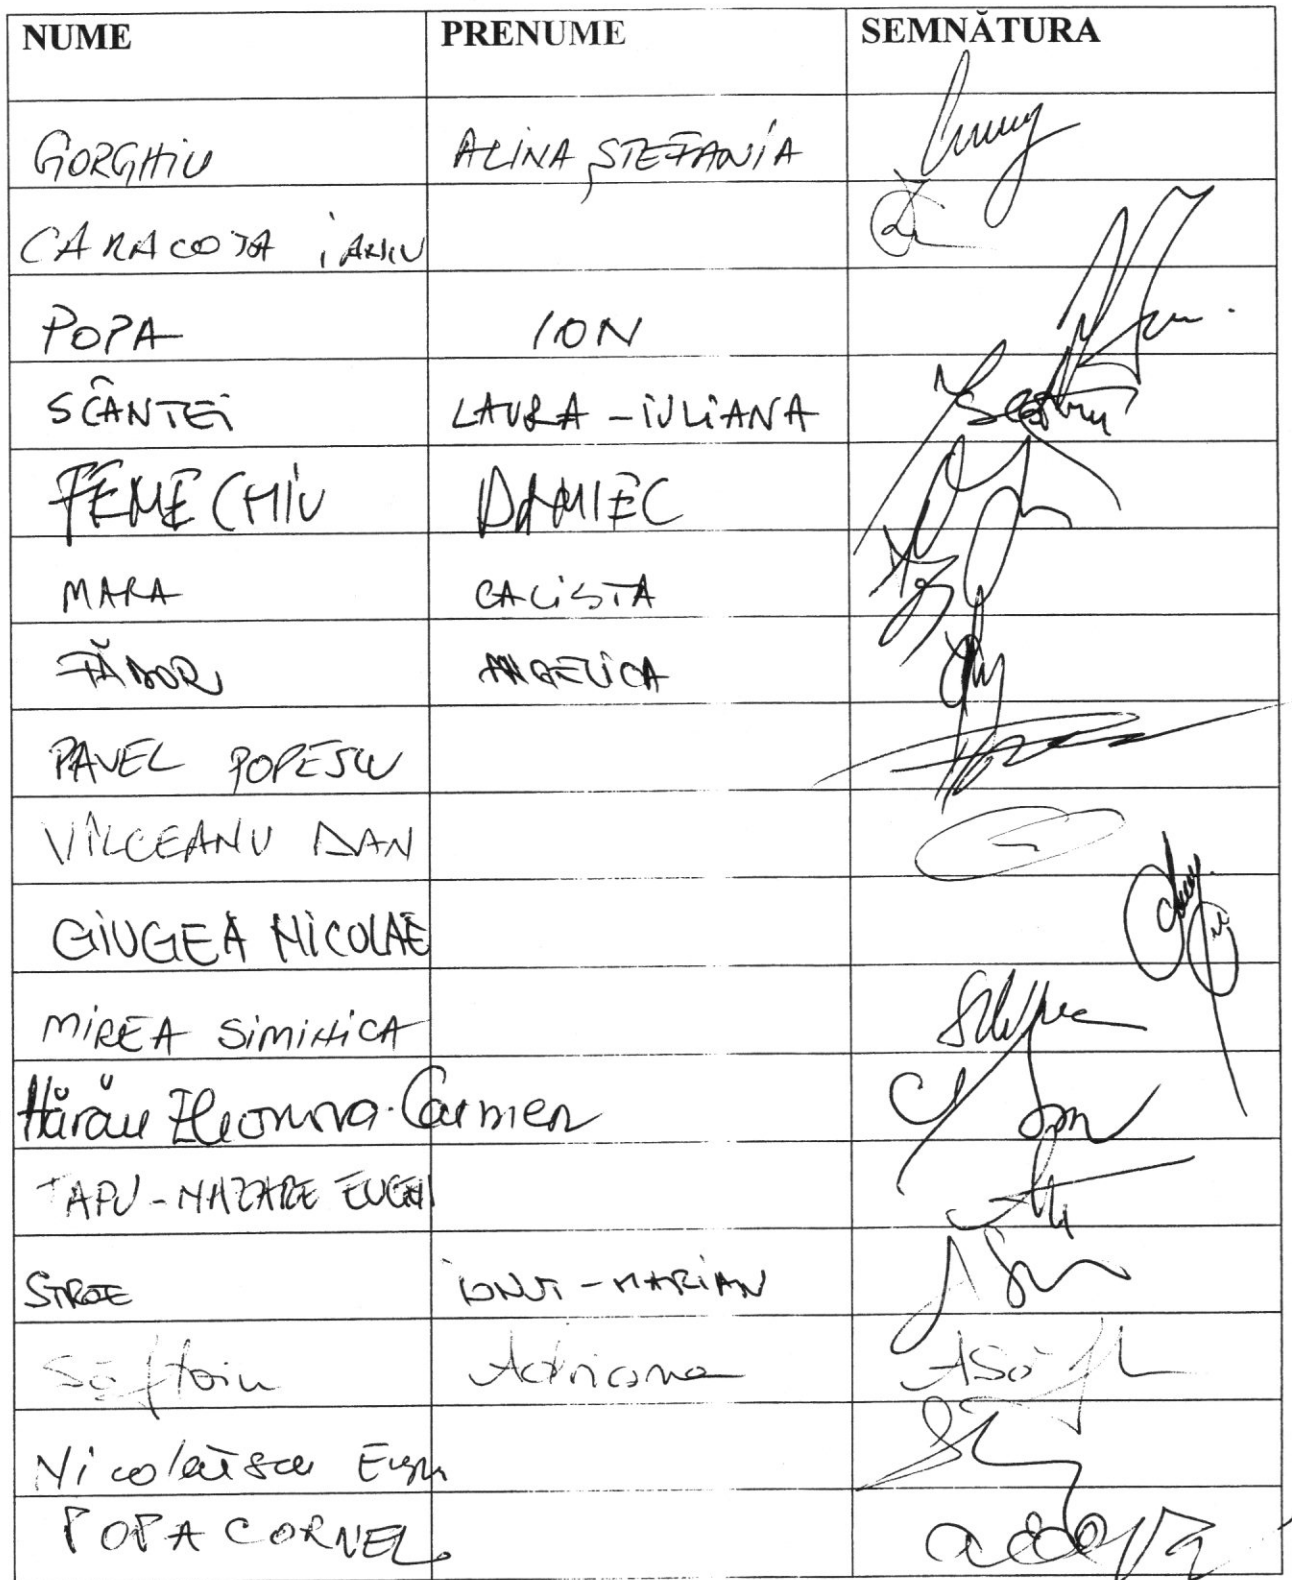 NUME PRENUME SEMNĂTURA
GORGHIU ALINA ȘTEFANIA
CARACOTA IANCU
POPA ION
SCÂNTEI LAURA - IULIANA
FENECHIU DANIEL
MARA CALISTA
FĂDOR ANGELICA
PAVEL POPESCU
VÎLCEANU DAN
GIUGEA NICOLAE
MIREA SIMINICA
Hărău Eleonora-Carmen
TAPU - NAZARE EUGEN
STROE IONUT - MARIAN
Săftoiu Adriana
Nicolăescu Eugen
POPA CORNEL